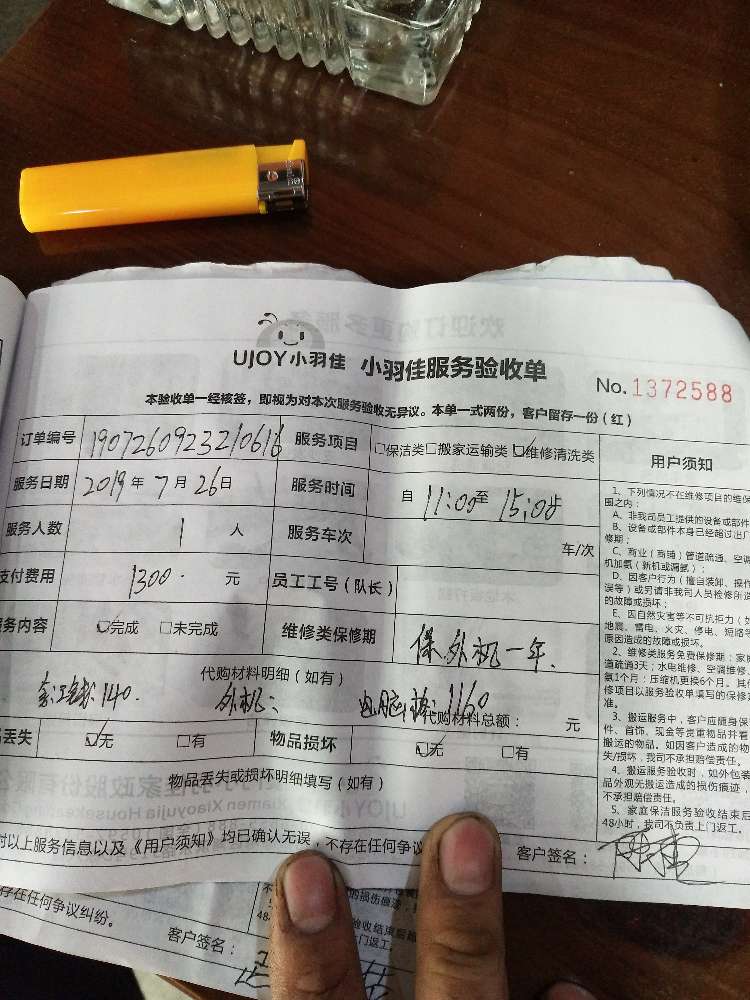 欢迎订购更多服务
UJOY小羽佳 小羽佳服务验收单
No.1372588
本验收单一经核签，即视为对本次服务验收无异议。本单一式两份，客户留存一份（红）
订单编号 190726092321061 服务项目 □保洁类□搬家运输类☑维修清洗类
服务日期 2019年7月26日 服务时间 自11:00至15:08
服务人数 1人 服务车次 车/次
支付费用 1300.元 员工工号（队长）
服务内容 ☑完成 □未完成 维修类保修期 保外机一年.
代购材料明细（如有）
140. 外机： 电脑 1160
代购材料总额： 元
丢失 ☑无 □有 物品损坏 ☑无 □有
物品丢失或损坏明细填写（如有）
对以上服务信息以及《用户须知》均已确认无误，不存在任何争议
客户签名：
用户须知
1、下列情况不在维修项目的维保
围之内：
A、非我司员工提供的设备或部件
B、设备或部件本身已经超过出厂
修期；
C、商业（商铺）管道疏通、空调
机加氨（新机或漏氨）；
D、因客户行为（擅自装卸、操作
误等）或另请非我司人员检修所造
的故障或损坏；
E、因自然灾害等不可抗拒力（如
地震、雷电、火灾、停电、短路等
原因造成的故障或损坏。
2、维修类服务免费保修期：家庭
道疏通3天；水电维修、空调维修、
氨1个月；压缩机更换6个月。其
修项目以服务验收单填写的保修
准。
3、搬运服务中，客户应随身保
件、首饰、现金等贵重物品并看
搬运的物品。如因客户造成的物
失/损坏，我司不承担赔偿责任。
4、搬运服务验收时，如外包装
品外观无搬运造成的损伤痕迹，
不承担赔偿责任。
5、家庭保洁服务验收结束后
48小时，我司不负责上门返工。
存在任何争议纠纷。
客户签名：